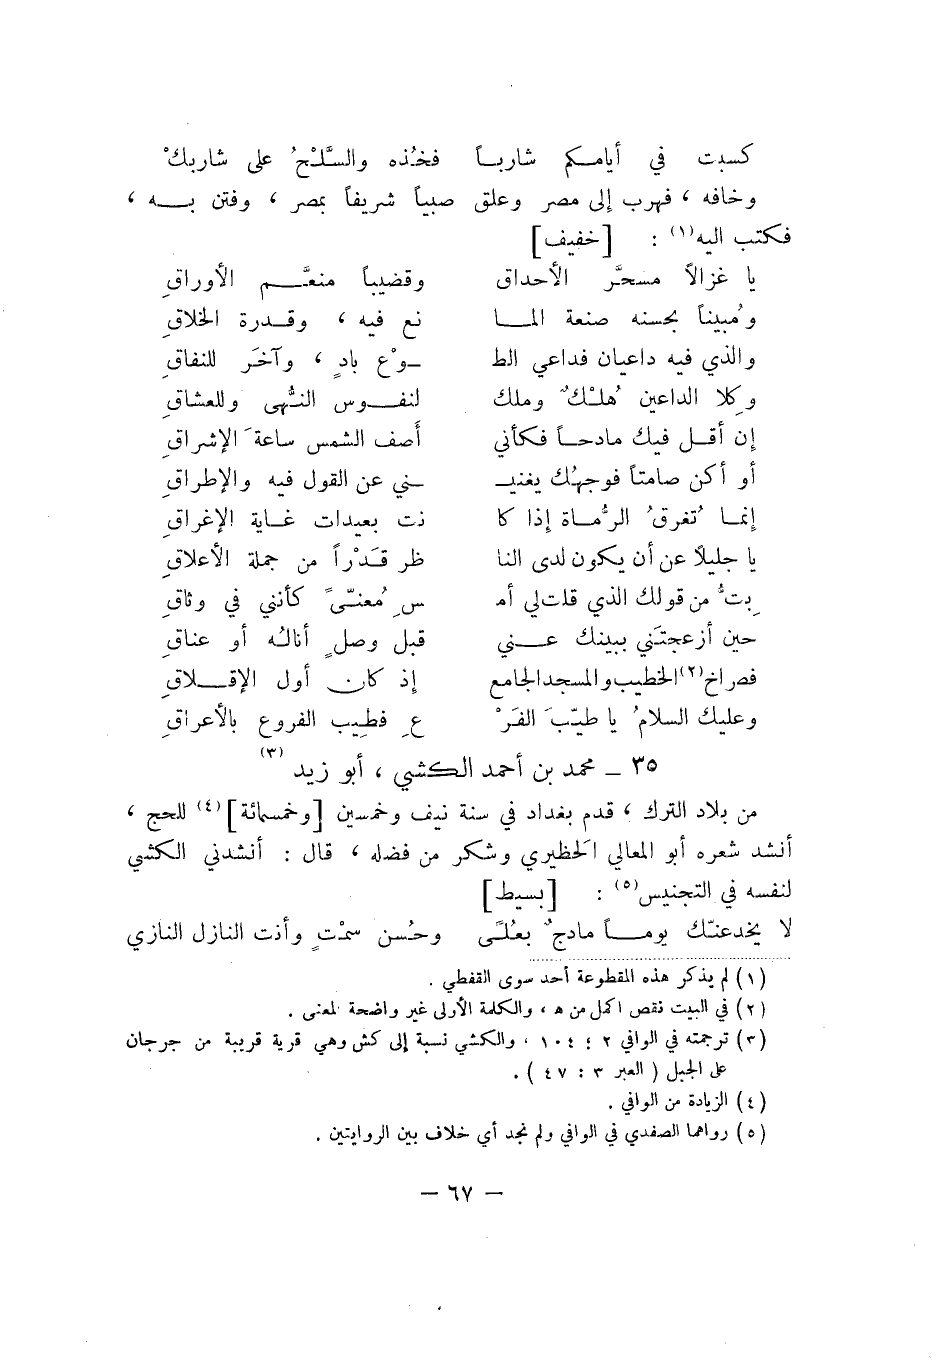 كسبت في أيامكم شارباً فخُذه والسَّلْحُ على شاربكْ
وخافه ، فهرب إلى مصر وعلق صبياً شريفاً بمصر ، وفتن به ،
فكتب اليه(١) : [خفيف]
يا غزالاً مسحَّر الأحداق وقضيباً منعَّم الأوراقِ
ومُبيناً بحسنه صنعة الما نع فيه ، وقدرة الخلاقِ
والذي فيه داعيان فداعي الط ـوْع بادٍ ، وآخَر للنفاقِ
وكِلا الداعين هُلْكٌ وملك لنفوس النُّهى وللعشاقِ
إن أقل فيك مادحاً فكأني أَصف الشمس ساعةَ الإشراقِ
أو أكن صامتاً فوجهُك يغنيـ ـني عن القول فيه والإطراقِ
إنما تُغرقُ الرُّماة إذا كا نت بعيدات غاية الإغراقِ
يا جليلاً عن أن يكون لدى النا ظر قَدْراً من جملة الأعلاقِ
بِتُّ من قولك الذي قلت لي أمـ سِ مُعنّىً كأنني في وثاقِ
حين أزعجتَني ببينك عني قبل وصلٍ أنالُه أو عناقِ
فصراخ(٢) الخطيب والمسجد الجامع إذ كان أول الإقلاقِ
وعليك السلامُ يا طيّبَ الفَرْ عِ فطِيب الفروع بالأعراقِ
٣٥ ـ محمد بن أحمد الكشي ، أبو زيد (٣)
من بلاد الترك ، قدم بغداد في سنة نيف وخمسين [وخمسمائة](٤) للحج ،
أنشد شعره أبو المعالي الحَظيري وشكر من فضله ، قال : أنشدني الكشي
لنفسه في التجنيس(٥) : [بسيط]
لا يخدعنّك يوماً مادحٌ بعُلىً وحُسن سمْتٍ وأنت النازل النازي
(١) لم يذكر هذه المقطوعة أحد سوى القفطي .
(٢) في البيت نقص اكمل من ه ، والكلمة الأولى غير واضحة المعنى .
(٣) ترجمته في الوافي ٢ : ١٠٤ ، والكشي نسبة إلى كش وهي قرية قريبة من جرجان
على الجبل ( العبر ٣ : ٤٧ ) .
(٤) الزيادة من الوافي .
(٥) رواهما الصفدي في الوافي ولم نجد أي خلاف بين الروايتين .
— ٦٧ —